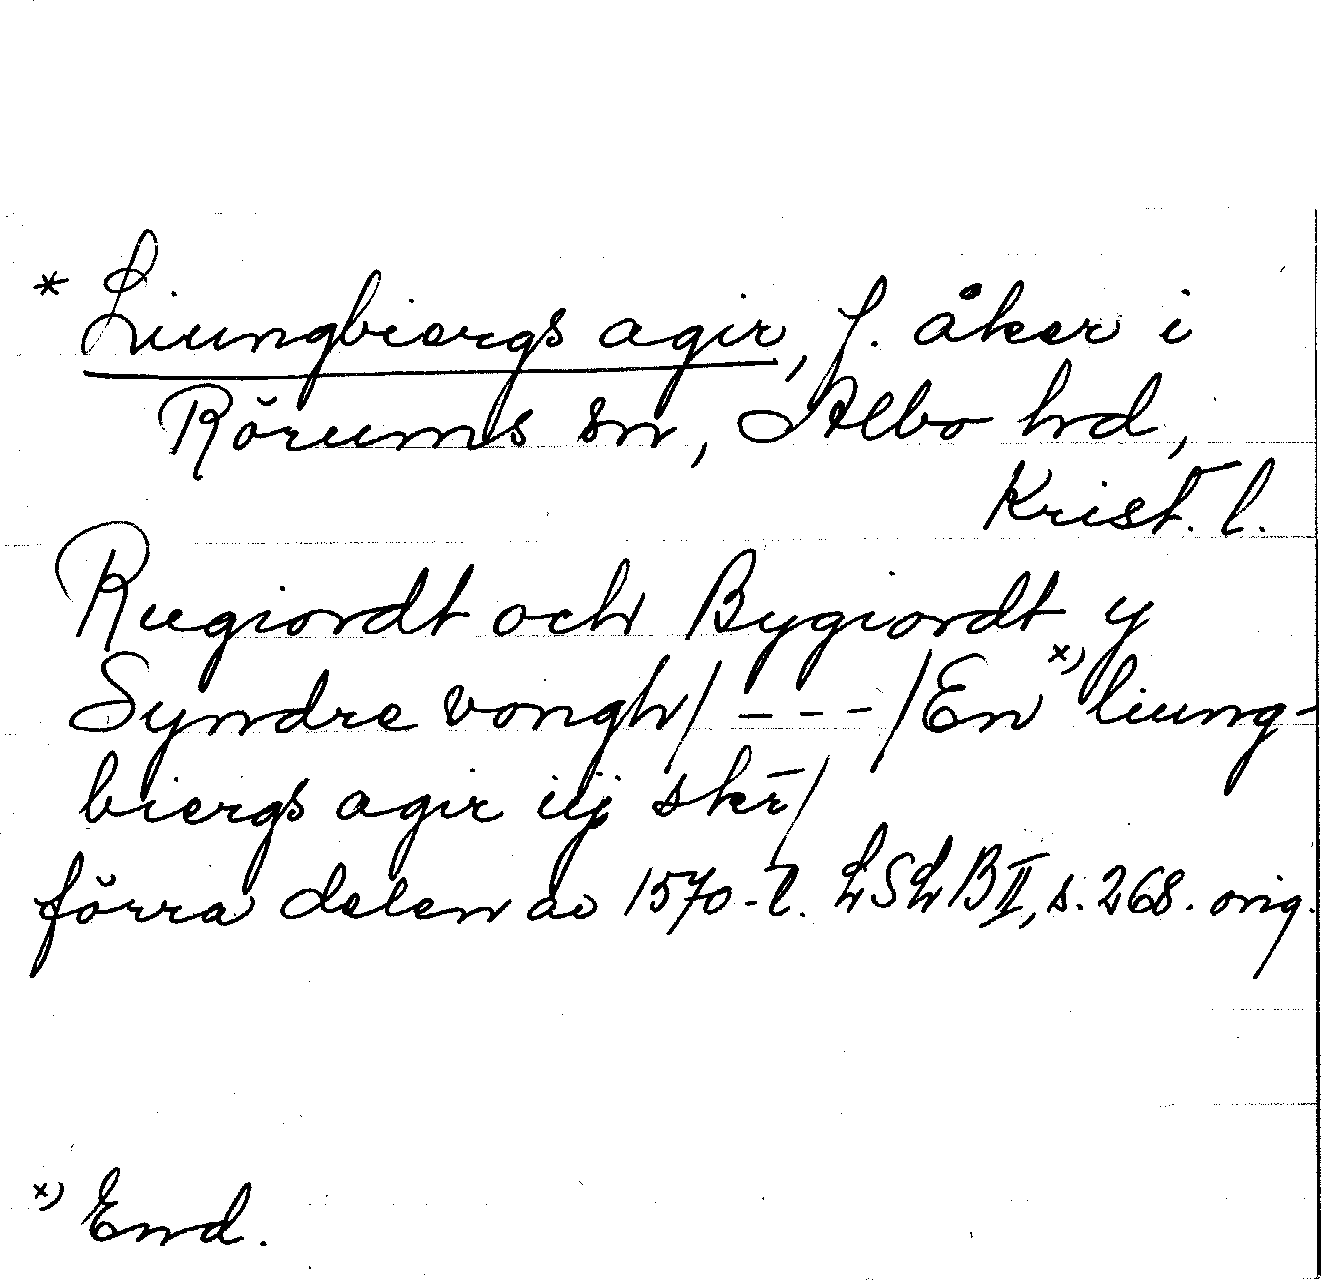 * Liungbiergs agir, f. åker i
Rörums sn, Albo hd,
Krist. l.
Rugiordt och Bygiordt y
Syndre vongh/ - - - /En x) liung-
biergs agir iij skr̄/
förra delen av 1570-t. LSLB II, s. 268. orig.
x) End.